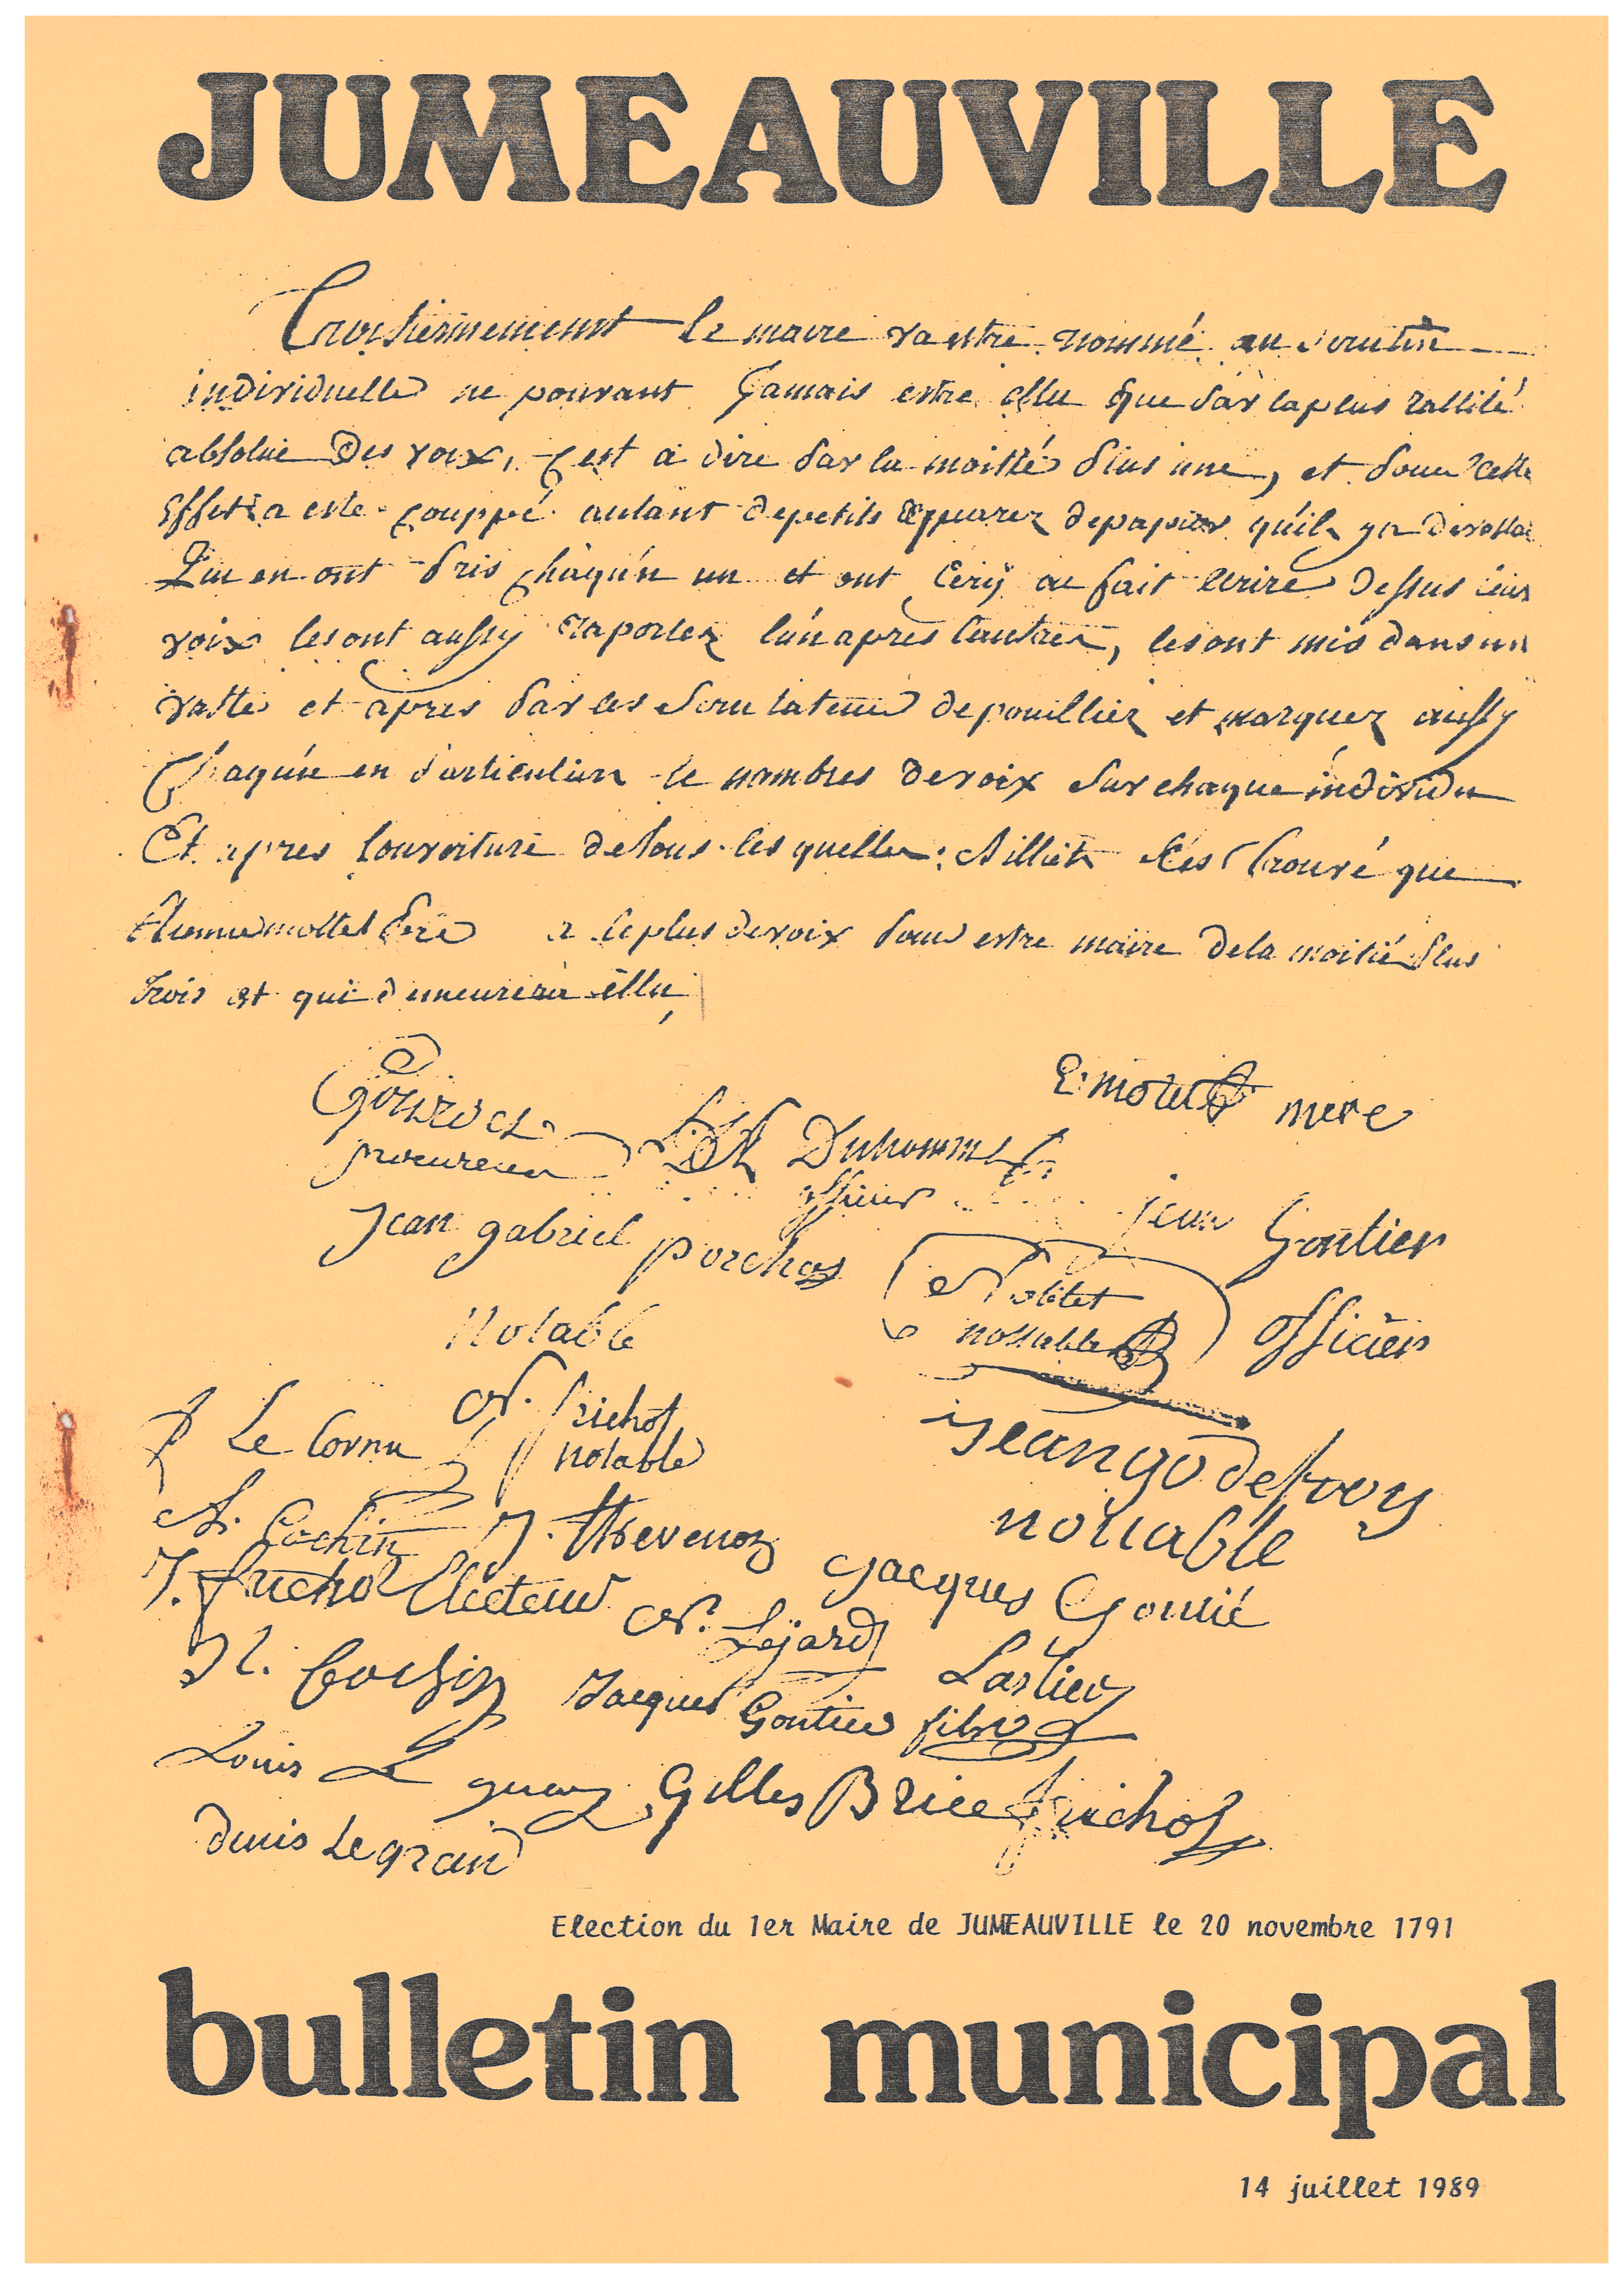 JUMEAUVILLE
le maire va estre nommé au scrutin
individuelle ne pouvant jamais estre ellu que par la plus rallité
absolue Des voix, C'est a dire par la moitié plus une, et pour cette
Effet a esté couppé autant de petits de papier qu'il y a
Qui en ont pris chaqu'n un et ont Ecry ou fait ecrire Dessus leur
voix les ont aussy raportez l'un apres l'autre, les ont mis dans un
vasse et apres par les Scrutateur depouillier et marquez aussy
Chaqu'n en particulier le nombres de voix sur chaque individu
Et apres l'ouverture de tous les quelles Billiets s'es trouvé que
mottet Pere a le plus de voix pour estre maire de la moitié plus
trois et qui demeurera ellu
E. motet mere
procureur
Duhommet
officier
jean Gontier
officier
Jean gabriel porchas
Notable
nottable
Le Cornu
N. frichot
notable
jean godefroy
nottable
A. Cochin
J. thevenon
J. frichot Electeur
Jacques Gontié
N. Lejard
N. Cochin
Lastier
Jacques Gontier fils
Louis Le quay
Gilles Brice frichot
denis Legrand
Election du 1er Maire de JUMEAUVILLE le 20 novembre 1791
bulletin municipal
14 juillet 1989